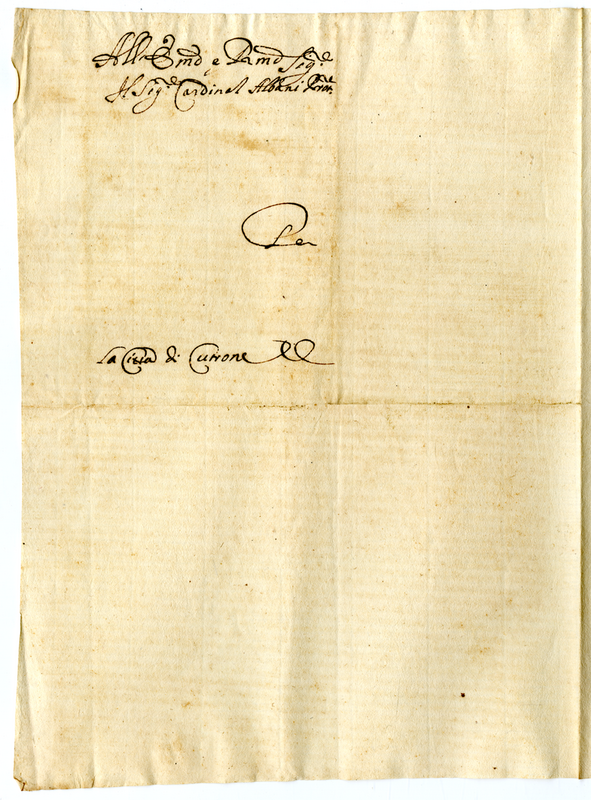 All Emo e Rmo Sigre
Il Sigre Cardinal Albani Pron.
Per
La Città di Cutrone